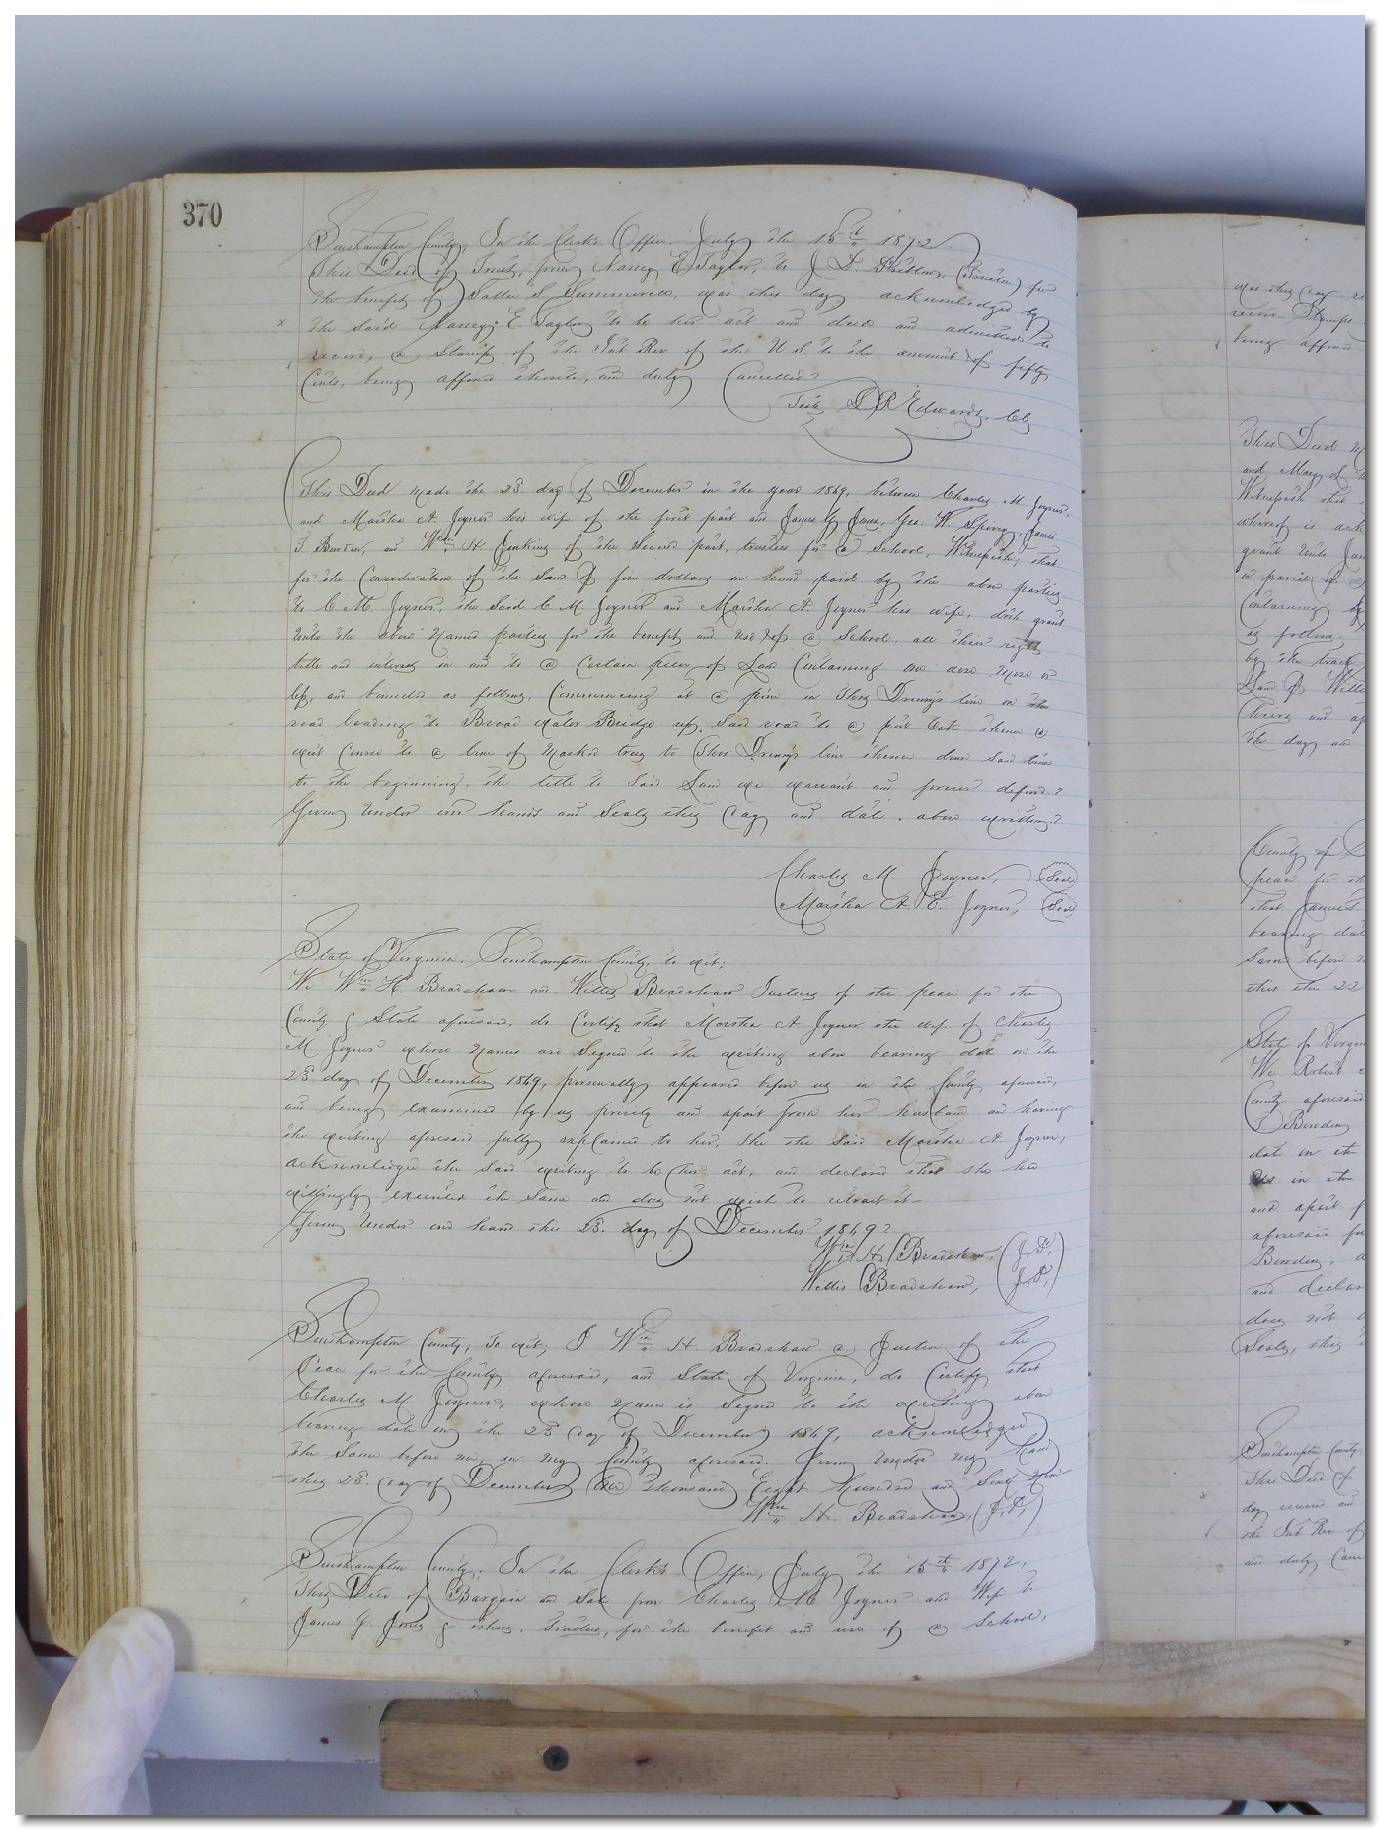 370
Southampton County, In the Clerk's Office July the 15th 1872
This Deed of Trust, from Nancy E Taylor, to J. D. (Trustee) for
the benefit of Sallie S Summerell, was this day acknowledged by
the said Nancy E. Taylor to be her act and deed and admitted to
record, a Stamp of the Int Rev of the U S to the amount of fifty
Cents, being affixed thereto, and duly Cancelled
Teste L R Edwards, Clk
This Deed made the 23d day of December in the year 1869, between Charles M. Joyner,
and Martha A. Joyner his wife of the first part and James G Jones, Geo. W. Spivey, James
T. and Wm H. of the Second part, trustees for a School, Witnesseth, that
for the Consideration of the Sum of five dollars in hand paid by the above parties
to C M. Joyner, the Said C M. Joyner and Martha A. Joyner his wife, doth grant
Unto the above Named parties for the benefit and use of a School, all their right
title and interest in and to a Certain piece of Land Containing one acre More or
less, and bounded as follows, Commencing at a pine in Thos line on the
road leading to Broad Water Bridge up Said road to a post Oak thence a
west Course to a line of Marked trees to Thos line thence down Said line
to the beginning, the title to Said Land we warrant and forever defend
Given Under our hands and Seals this day and date above written
Charles M Joyner, (Seal)
Martha A. E. Joyner, (Seal)
State of Virginia, Southampton County, to wit;
We Wm H Bradshaw and Willis Bradshaw Justices of the peace for the
County & State aforesaid, do Certify that Martha A Joyner the wife of Charles
M Joyner whose Names are Signed to the writing above bearing date on the
23d day of December 1869, personally appeared before us in the County aforesaid,
and being examined by us privily and apart from her husband and having
the writing aforesaid fully explained to her, She the Said Martha A Joyner,
acknowledged the Said writing to be her act, and declared that she had
willingly executed the Same and does not wish to retract it
Given Under our hand this 23d day of December 1869
Wm H. Bradshaw, (J. P.)
Willis Bradshaw, (J. P.)
Southampton County, To wit; I Wm H Bradshaw a Justice of the
Peace for the County aforesaid, and State of Virginia, do Certify that
Charles M Joyner, whose Name is Signed to the writing above
bearing date on the 23d day of December 1869, acknowledged
the Same before me in my County aforesaid. Given Under my hand
this 23d day of December One thousand Eight hundred and Sixty Nine
Wm H. Bradshaw, (J, P,)
Southampton County; In the Clerk's Office, July the 15th 1872,
This Deed of Bargain and Sale from Charles M Joyner and Wife to
James G. Jones & others, Trustees, for the benefit and use of a School,
was this day
record Stamps
being affixed
This Deed
and Mary
Witnesseth that
whereof is
grant Unto
Containing
as follows
by the track
Land of Willis
the day and
County of
peace for the
that James
bearing date
Same before
this the 22
State of Virginia
We Robert
County aforesaid
date on the
Us in the
and apart
aforesaid
and declared
does not
Seals, this
Southampton County
This Deed of
day and
the Int Rev of
and duly